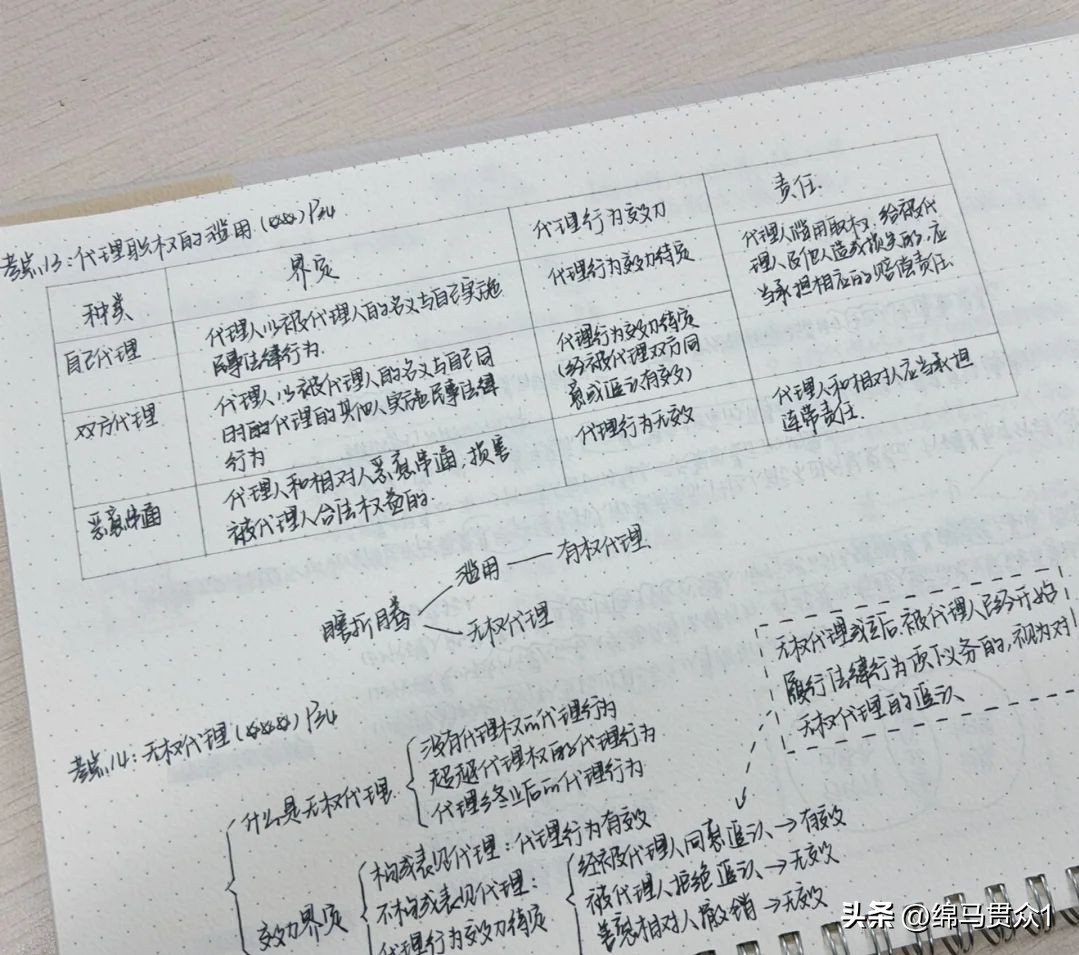 考点13：代理职权的滥用(☆☆) P34
种类 界定 代理行为效力 责任
自己代理
代理人以被代理人的名义与自己实施
民事法律行为.
代理行为效力待定
代理人滥用取权，给被代
理人民他人造成损失的，应
当承担相应的赔偿责任.
双方代理
代理人以被代理人的名义与自己同
时的代理的其他人实施民事法律
行为
代理行为效力待定
(经被代理双方同
意或追认有效)
恶意串通
代理人和相对人恶意串通，损害
被代理人合法权益的.
代理行为无效
代理人和相对人应当承担
连带责任.
瞎折腾
滥用——有权代理
无权代理
无权代理成立后，被代理人已经开始
履行法律行为项下义务的，视为对
无权代理的追认
考点14：无权代理(☆☆☆) P34
什么是无权代理
没有代理权的代理行为
超越代理权的代理行为
代理终止后的代理行为
效力界定
构成表见代理：代理行为有效
不构成表见代理：
代理行为效力待定
经被代理人同意追认→有效
被代理人拒绝追认→无效
善意相对人撤销→无效
头条 @绵马贯众1